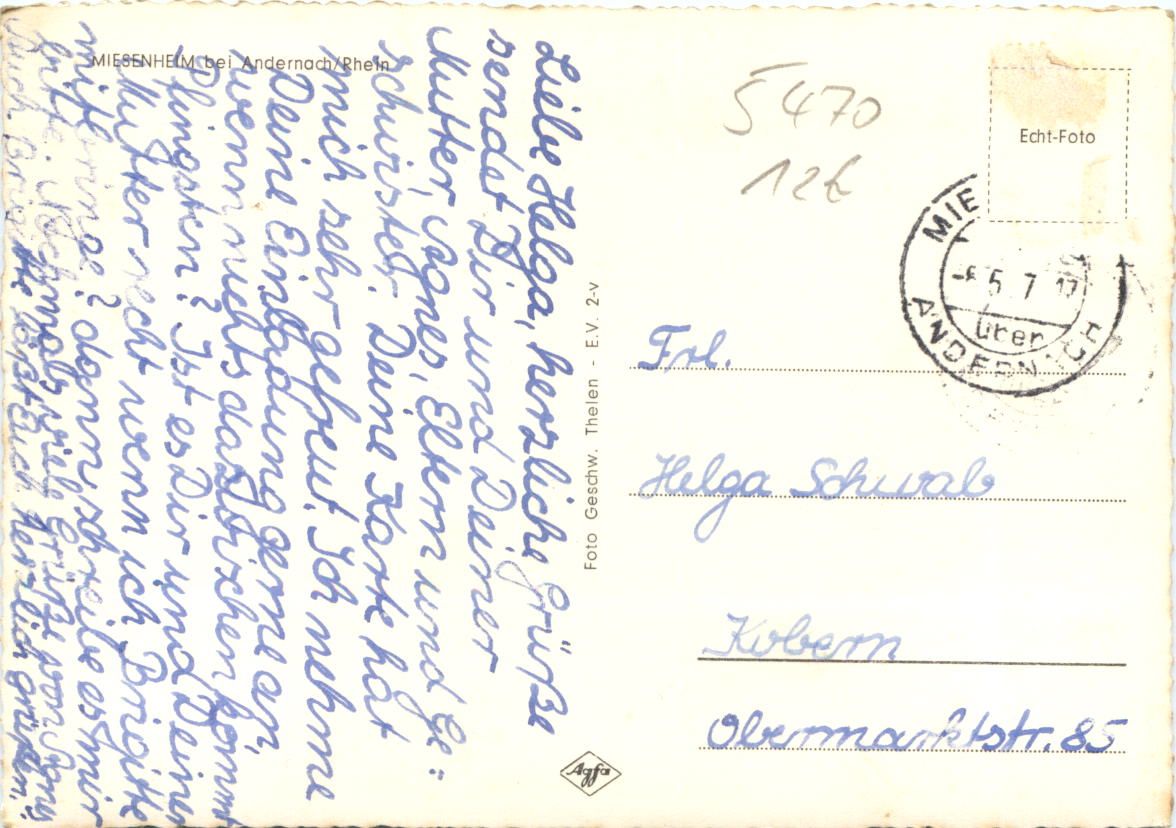 MIESENHEIM bei Andernach/Rhein
Liebe Helga, herzliche Grüße
sendet Dir und Deiner
Mutter, Agnes, Eltern und Ge=
schwister. Deine Karte hat
mich sehr gefreut. Ich nehme
Deine Einladung gerne an,
wenn nichts dazwischen kommt
Pfingsten? Ist es Dir und Deiner
Mutter recht wenn ich Brigitte
mitbringe? dann schreibe es mir
bitte. Nochmals viele Grüße von Agnes
Auch Brigitte läßt Euch herzlich grüßen.
Foto Geschw. Thelen - E.V. 2-v
Agfa
5470
12€
Echt-Foto
MIE
-6.5.7 17
über
ANDERNACH
Frl.
Helga Schwab
Kobern
Obermarktstr. 85